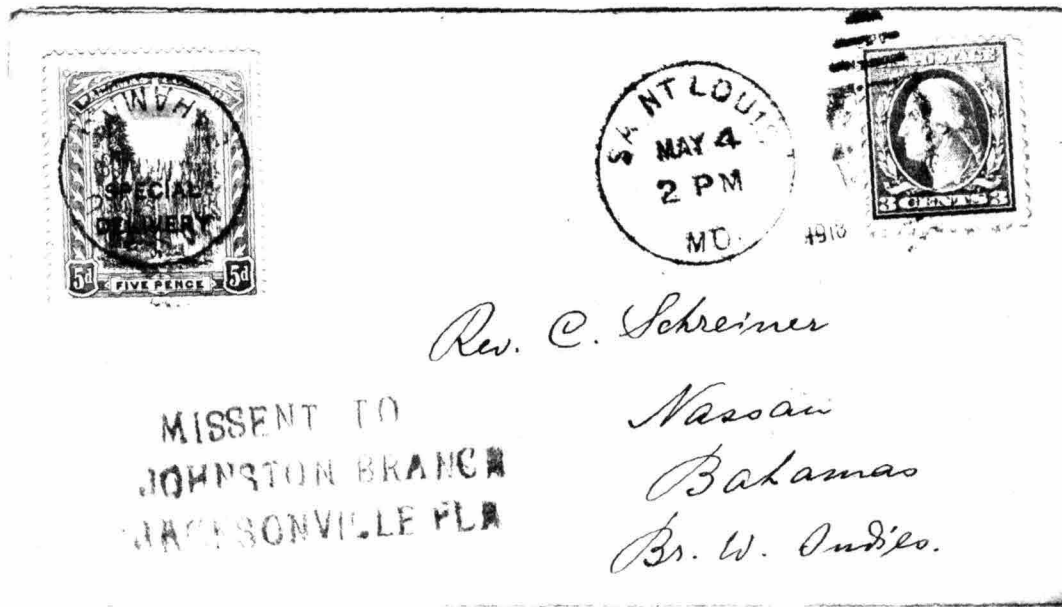 SPECIAL
DELIVERY
5d FIVE PENCE 5d
SAINT LOUIS
MAY 4
2 PM
MO.
1918
POSTAGE
3 CENTS 3
Rev. C. Schreiner
Nassau
Bahamas
Br. W. Indies.
MISSENT TO
JOHNSTON BRANCH
JACKSONVILLE FLA